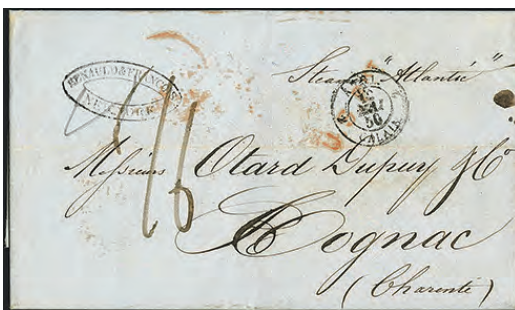 RENAULD & FRANCOIS
NEW-YORK
Steamer "Atlantic"
MAI
50
CALAIS
16
Messieurs Otard Dupuy & Co
Cognac
(Charente)